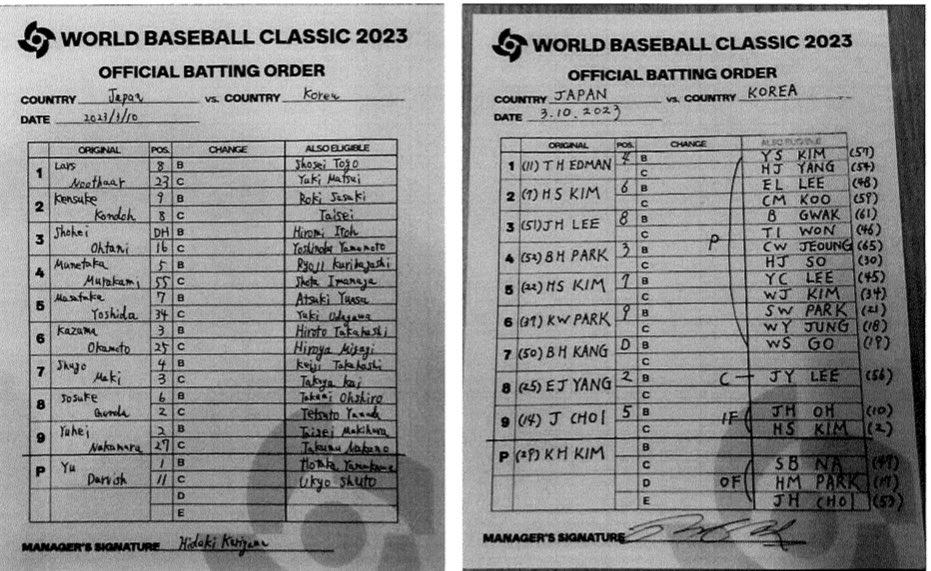 WORLD BASEBALL CLASSIC 2023
OFFICIAL BATTING ORDER
COUNTRY Japan vs. COUNTRY Korea
DATE 2023/3/10
ORIGINAL POS. CHANGE ALSO ELIGIBLE
1 Lars 8 B Shosei Togo
Nootbaar 23 C Yuki Matsui
2 Kensuke 9 B Roki Sasaki
Kondoh 8 C Taisei
3 Shohei DH B Hiromi Itoh
Ohtani 16 C Yoshinobu Yamamoto
4 Munetaka 5 B Ryoji Kuribayashi
Murakami 55 C Shota Imanaga
5 Masataka 7 B Atsuki Yuasa
Yoshida 34 C Yuki Udagawa
6 Kazuma 3 B Hiroto Takahashi
Okamoto 25 C Hiroya Miyagi
7 Shugo 4 B Keiji Takahashi
Maki 3 C Takuya Kai
8 Sosuke 6 B Takumi Ohshiro
Genda 2 C Tetsuto Yamada
9 Yuhei 2 B Taisei Makihara
Nakamura 27 C Takumu Nakano
P Yu 1 B Hotaka Yamakawa
Darvish 11 C Ukyo Shuto
D
E
MANAGER'S SIGNATURE Hideki Kuriyama
WORLD BASEBALL CLASSIC 2023
OFFICIAL BATTING ORDER
COUNTRY JAPAN vs. COUNTRY KOREA
DATE 3.10.2023
ORIGINAL POS. CHANGE ALSO ELIGIBLE
1 (11) TH EDMAN 4 B YS KIM (57)
C HJ YANG (54)
2 (7) HS KIM 6 B EL LEE (48)
C CM KOO (59)
3 (51) JH LEE 8 B B GWAK (61)
C P TI WON (46)
4 (52) BH PARK 3 B CW JEOUNG (65)
C HJ SO (30)
5 (22) HS KIM 7 B YC LEE (45)
C WJ KIM (34)
6 (37) KW PARK 9 B SW PARK (21)
C WY JUNG (18)
7 (50) BH KANG D B WS GO (19)
C
8 (25) EJ YANG 2 B C — JY LEE (56)
C
9 (14) J CHOI 5 B IF JH OH (10)
C HS KIM (2)
P (29) KH KIM B
C SB NA (47)
D OF HM PARK (17)
E JH CHOI (53)
MANAGER'S SIGNATURE